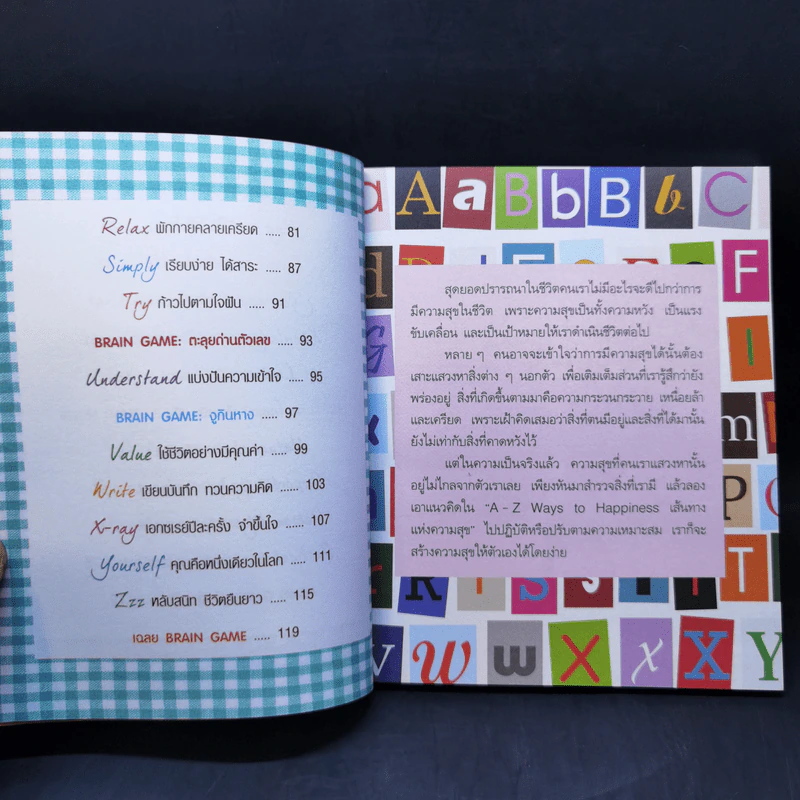 Relax พักกายคลายเครียด ..... 81
Simply เรียบง่าย ได้สาระ ..... 87
Try ก้าวไปตามใจฝัน ..... 91
BRAIN GAME: ตะลุยด่านตัวเลข ..... 93
Understand แบ่งปันความเข้าใจ ..... 95
BRAIN GAME: งูกินหาง ..... 97
Value ใช้ชีวิตอย่างมีคุณค่า ..... 99
Write เขียนบันทึก ทวนความคิด ..... 103
X-ray เอกซเรย์ปีละครั้ง จำขึ้นใจ ..... 107
Yourself คุณคือหนึ่งเดียวในโลก ..... 111
Zzz หลับสนิท ชีวิตยืนยาว ..... 115
เฉลย BRAIN GAME ..... 119
a A a B b B b C
F
สุดยอดปรารถนาในชีวิตคนเราไม่มีอะไรจะดีไปกว่าการ
มีความสุขในชีวิต เพราะความสุขเป็นทั้งความหวัง เป็นแรง
ขับเคลื่อน และเป็นเป้าหมายให้เราดำเนินชีวิตต่อไป
หลาย ๆ คนอาจจะเข้าใจว่าการมีความสุขได้นั้นต้อง
เสาะแสวงหาสิ่งต่าง ๆ นอกตัว เพื่อเติมเต็มส่วนที่เรารู้สึกว่ายัง
พร่องอยู่ สิ่งที่เกิดขึ้นตามมาคือความกระวนกระวาย เหนื่อยล้า
และเครียด เพราะเฝ้าคิดเสมอว่าสิ่งที่ตนมีอยู่และสิ่งที่ได้มานั้น
ยังไม่เท่ากับสิ่งที่คาดหวังไว้
แต่ในความเป็นจริงแล้ว ความสุขที่คนเราแสวงหานั้น
อยู่ไม่ไกลจากตัวเราเลย เพียงหันมาสำรวจสิ่งที่เรามี แล้วลอง
เอาแนวคิดใน “A – Z Ways to Happiness เส้นทาง
แห่งความสุข” ไปปฏิบัติหรือปรับตามความเหมาะสม เราก็จะ
สร้างความสุขให้ตัวเองได้โดยง่าย
v w w X x X Y